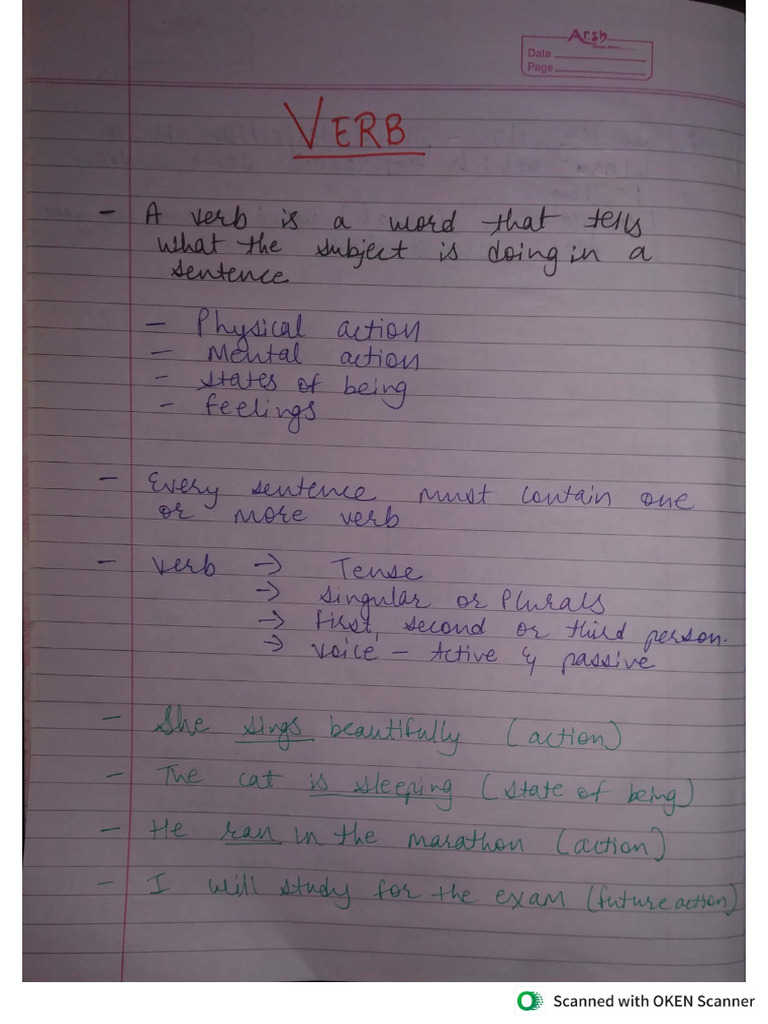 Arsh
Date
Page
VERB
- A verb is a word that tells
what the subject is doing in a
sentence
- Physical action
- Mental action
- states of being
- feelings
- Every sentence must contain one
or more verb
- verb → Tense
→ singular or Plurals
→ first, second or third person.
→ voice - Active & passive
- She sings beautifully (action)
- The cat is sleeping (state of being)
- He ran in the marathon (action)
- I will study for the exam (future action)
Scanned with OKEN Scanner